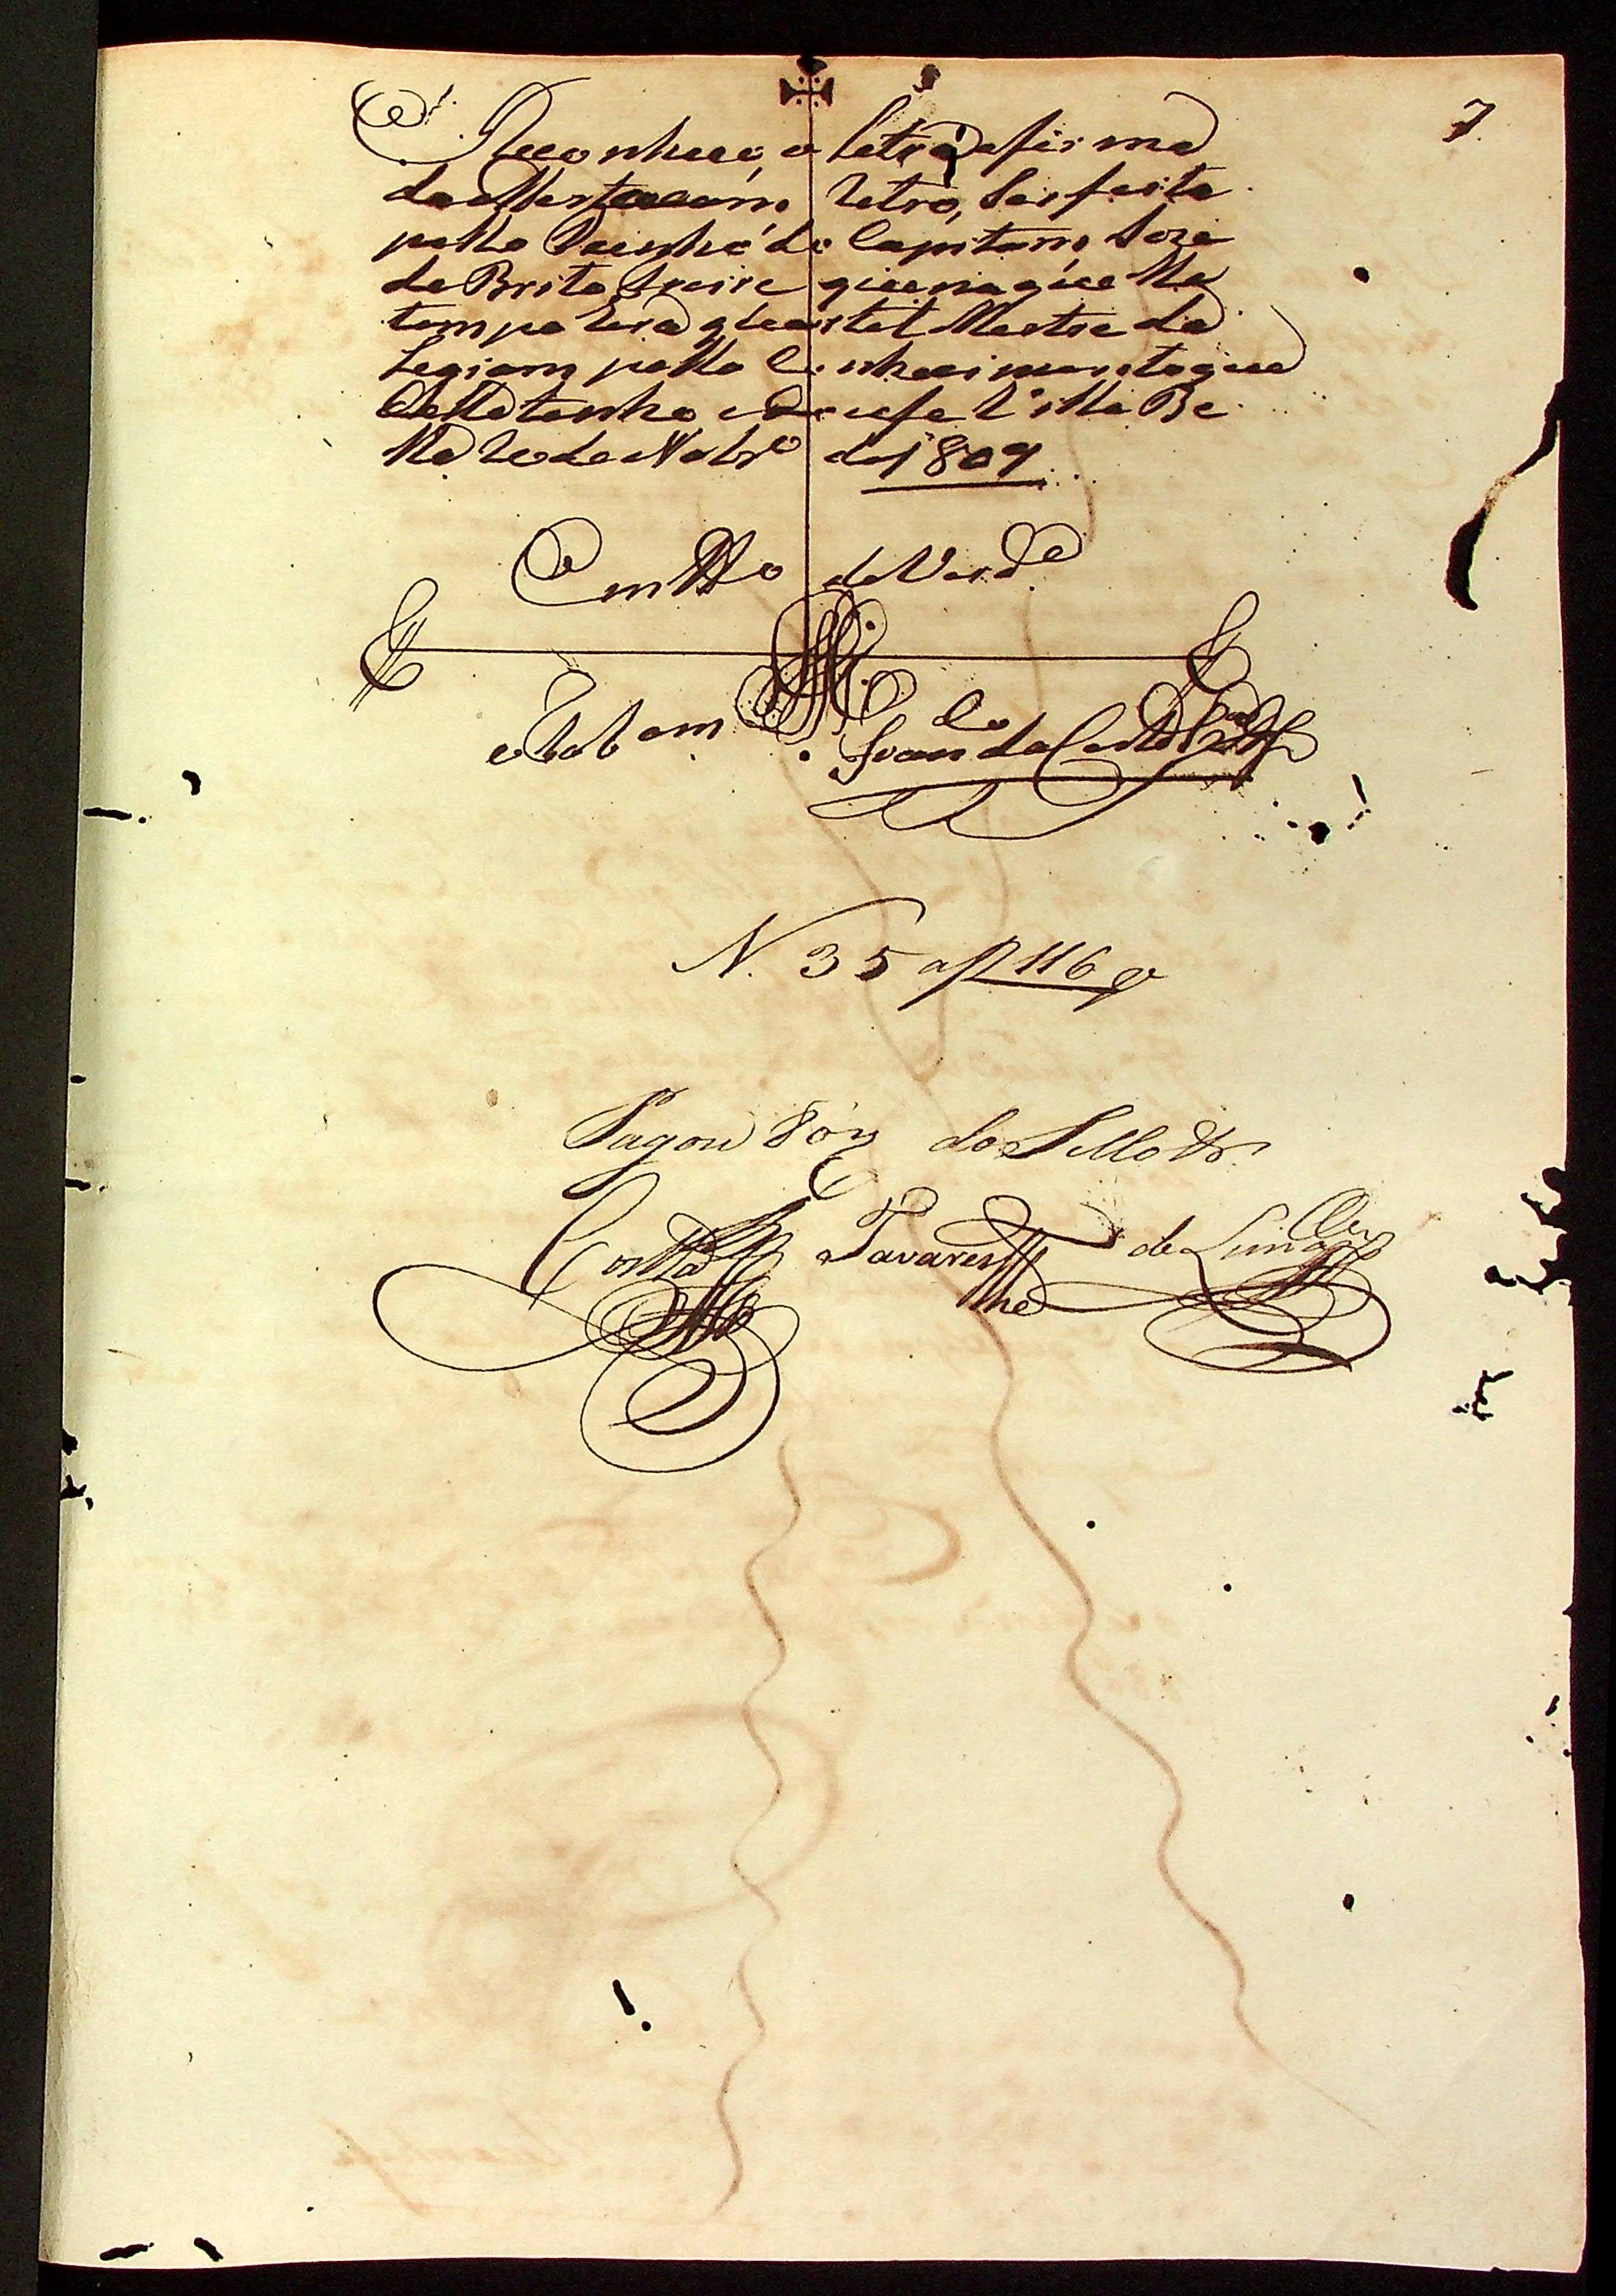 7
Reconheço a Letra e firma
da Atestacam retro, Ser feita
pello Punho do Capitam Jozé
de Brito Freire que naquelle
tempo hera quartel Mestre da
Legiam pello Conhecimento que
della tenho e dou fe Villa Be
lla 20 de Nobrº de 1809
Em Ttº de Verdº
o Tabam Joam da Costa
N. 35 af 116 v
Pagou 80 rs do Sello
Costa Tavares de Lima